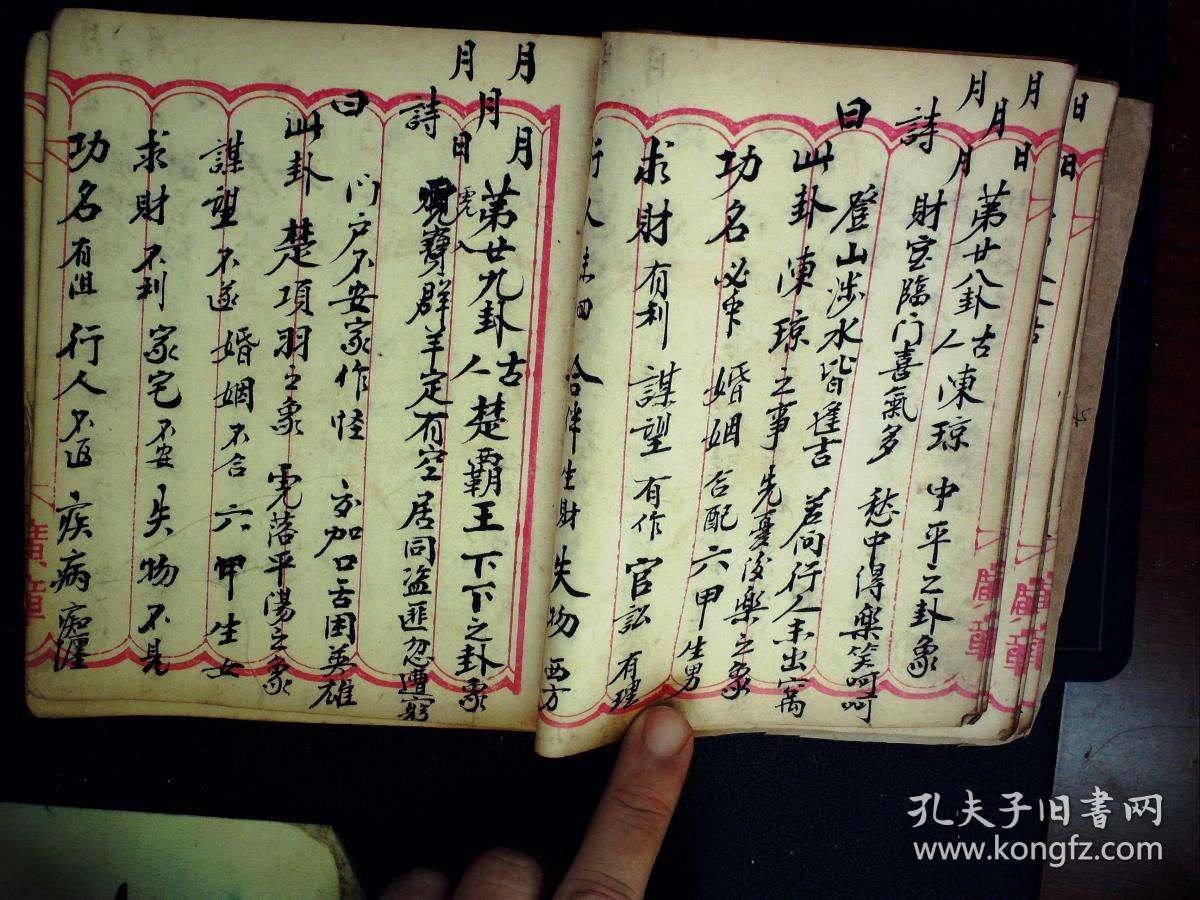 月
月
月
日
月
第廿八卦 古人 陳琼 中平之卦象
詩 財宝臨门喜氣多 愁中得樂笑呵呵
曰 登山涉水皆進吉 若问行人未出寓
此卦 陳琼之事 先憂後樂之象
功名 必中 婚姻 合配 六甲 生男
求財 有利 謀望 有作 官訟 有理
行人 未回 合伴 生財 失物 西方
月
月
月
月
日
第廿九卦 古人 楚霸王 下下之卦象
詩 群羊定有空 居同盗匪忽遭窮
曰 门户不安家作怪 亦加口舌困英雄
此卦 楚項羽之象 虎落平陽之象
謀望 不遂 婚姻 不合 六甲 生女
求財 不利 家宅 不安 失物 不見
功名 有阻 行人 不返 疾病
廣章
廣章
廣章
日
日
孔夫子旧书网
www.kongfz.com